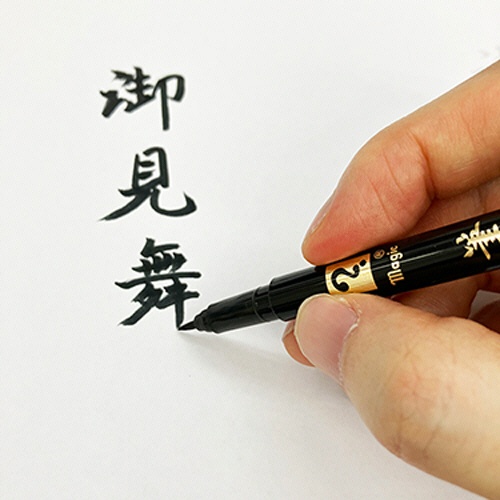 御見舞
Magic
筆